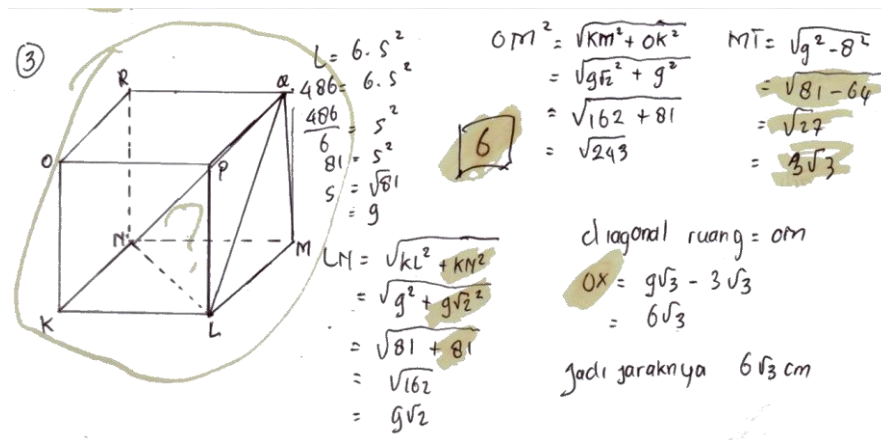 3
R
Q
O
P
N
M
K
L
L = 6. s²
486 = 6. s²
486/6 = s²
81 = s²
s = √81
= 9
LN = √KL² + KN²
= √9² + 9√2²
= √81 + 81
= √162
= 9√2
6
OM² = √KM² + OK²
= √9√2² + 9²
= √162 + 81
= √243
MT = √9² - 8²
= √81 - 64
= √27
= 3√3
diagonal ruang = om
OX = 9√3 - 3√3
= 6√3
Jadi jaraknya 6√3 cm